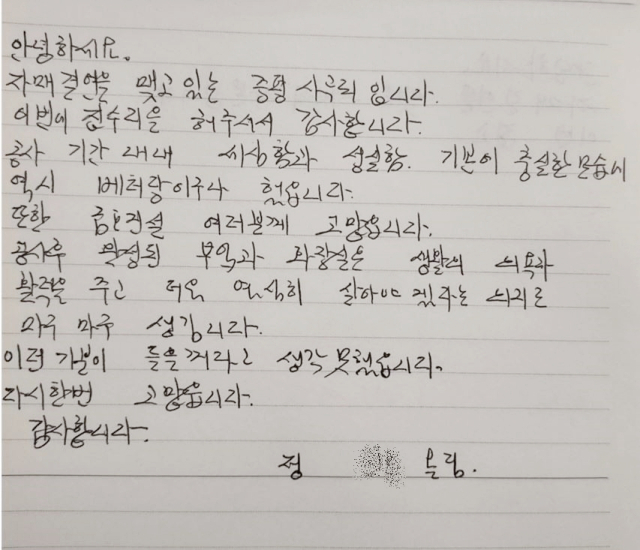 안녕하세요.
자매결연을 맺고 있는 증평 사곡리 입니다.
이번에 집수리를 해주셔서 감사합니다.
공사 기간 내내 세심함과 성실함. 기본이 충실한 모습이
역시 베터랑이구나 했읍니다.
또한 금호건설 여러분께 고맙읍니다.
공사후 완성된 부엌과 화장실은 생활의 의욕과
활력을 주고 더욱 열심히 살아야 겠다는 의지로
마구 마구 생깁니다.
이런 기분이 들을꺼라고 생각 못했읍니다.
다시한번 고맙읍니다.
감사합니다.
정 올림.